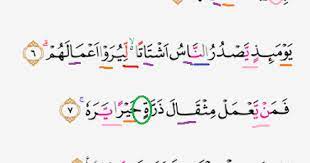 يَوْمَىِٕذٍ يَّصْدُرُ النَّاسُ اَشْتَاتًا ەۙ لِّيُرَوْا اَعْمَالَهُمْۗ ۝٦
فَمَنْ يَّعْمَلْ مِثْقَالَ ذَرَّةٍ خَيْرًا يَّرَهٗۚ ۝٧